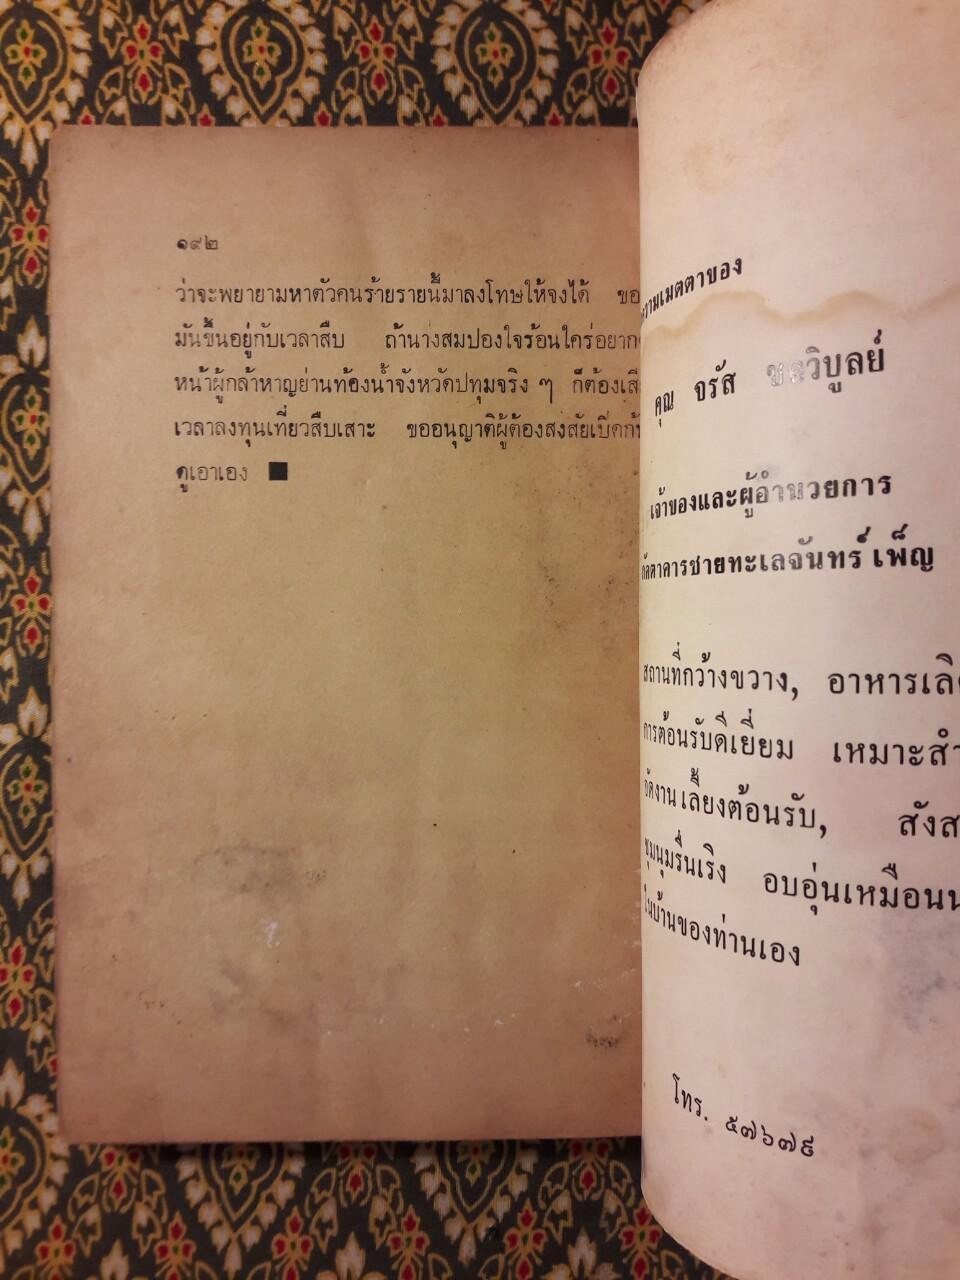 ๑๙๒
ว่าจะพยายามหาตัวคนร้ายรายนี้มาลงโทษให้จงได้
มันขึ้นอยู่กับเวลาสืบ ถ้านางสมปองใจร้อนใคร่อยาก
หน้าผู้กล้าหาญย่านท้องน้ำจังหวัดปทุมจริง ๆ ก็ต้อง
เวลาลงทุนเที่ยวสืบเสาะ ขออนุญาติผู้ต้องสงสัยเปิด
ดูเอาเอง
ความเมตตาของ
คุณ จรัส ชลวิบูลย์
เจ้าของและผู้อำนวยการ
ภัตตาคารชายทะเลจันทร์เพ็ญ
สถานที่กว้างขวาง, อาหาร
การต้อนรับดีเยี่ยม เหมาะ
จัดงานเลี้ยงต้อนรับ,
ชุมนุมรื่นเริง อบอุ่นเหมือน
ในบ้านของท่านเอง
โทร. ๕๗๖๗๙